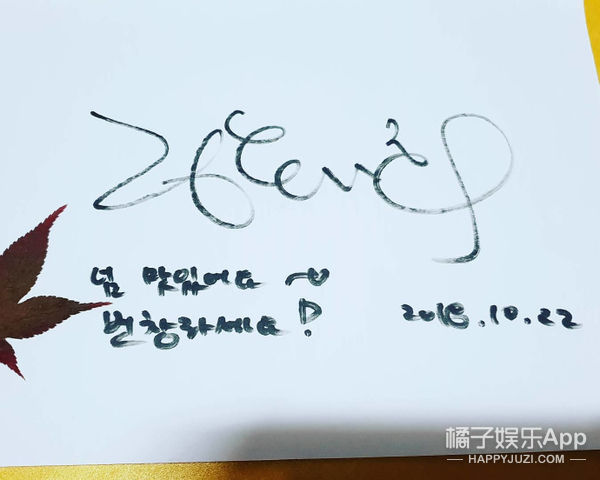 넘 맛있어요 ~
번창하세요! 2018.10.22
橘子娱乐App
HAPPYJUZI.COM